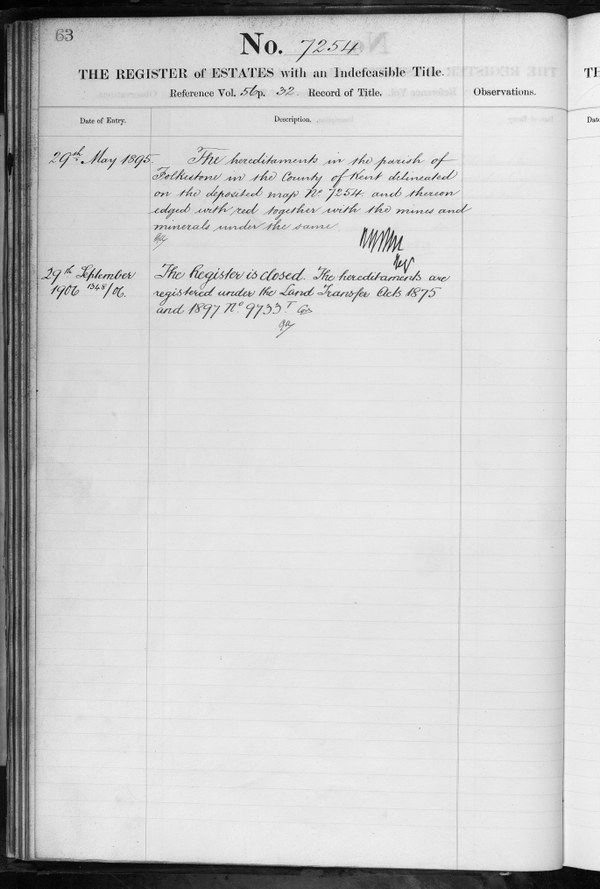 63
No. 7254
THE REGISTER of ESTATES with an Indefeasible Title.
Reference Vol. 56 p. 32. Record of Title.
Observations.
Date of Entry.
Description.
29th May 1895.
The hereditaments in the parish of
Folkestone in the County of Kent delineated
on the deposited map No 7254 and thereon
edged with red together with the mines and
minerals under the same
29th September
1906 1368/06.
The Register is closed. The hereditaments are
registered under the Land Transfer Acts 1875
and 1897 No 9733
TH